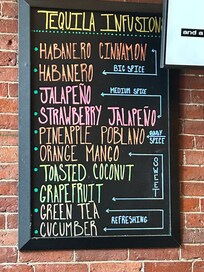 TEQUILA INFUSIONS
and a
HABANERO CINNAMON
HABANERO
BIG SPICE
JALAPEÑO
MEDIUM SPICE
STRAWBERRY JALAPEÑO
PINEAPPLE POBLANO
BABY SPICE
ORANGE MANGO
TOASTED COCONUT
SWEET
GRAPEFRUIT
GREEN TEA
REFRESHING
CUCUMBER